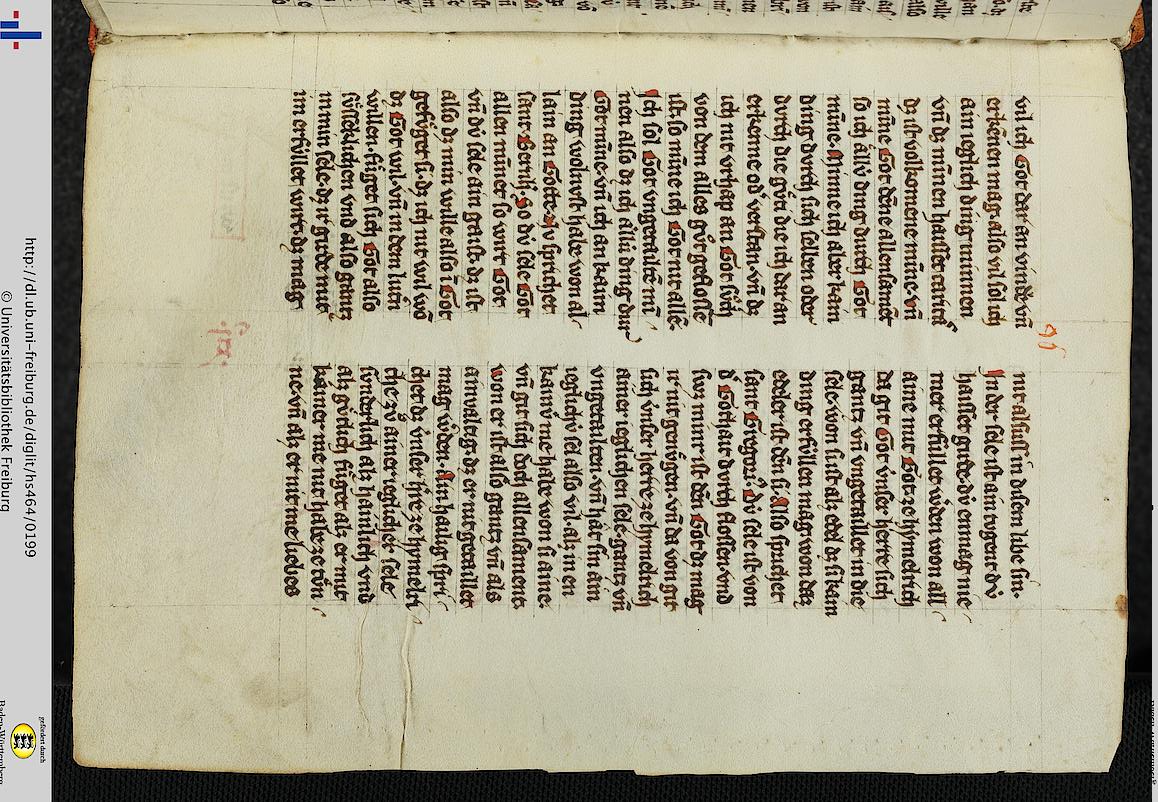 vil ich Got dar an vinde vn̄
erkēnen mag. also vil sol ich
ain ieglich ding minnen
vn̄ dz minnen haisset caritas
dz ist volkomene minne. vn̄
minne Got dēne allensamet
so ich ällv ding durch Got
minne. Minne ich aber kain
ding durch sich selben oder
durch die gv̊ti die ich dar an
erkenne od' verstan. vn̄ dz
ich nit vrhap an Got sv̊ch
von dem alles gv̊t geflossē
ist. so mīne ich Got nit allē.
Ich sol Got vngetailtē mī
nen also dz ich ällv ding dur
Got mīne. vn̄ ich an kaim
ding wolust habe. won al
lain an Gotte. zv sprichet
sant Bernh. So dv sele Got
allen minnet so wirt Got
vn̄ dv sele ain gaist. dz ist
also dz min wille also ī Got
gefüget si. dz ich nit wil wō
dz Got wil. vn̄ in dem lutn
willen. füget sich Got also
süsseklichen vnd also gantz
in min sele. dz ir girde mit
im erfüllet wirt. dz mag
96
nit alsust in disem libe sin.
In der sele ist ain tugent dv
haisset girde. dv enmag nie
mer erfüllet w'den won all
aine mit Got. ze hymelrich
da git Got vnser herre sich
gantz vn̄ vngetaillet in die
sele. won si ist alz edel dz si kain
ding erfüllen mag. won daz
edeler ist dēn si. Also sprichet
sant Gregori. Dv sele ist von
d' Gothait durch flossen. vnd
swz minr ist dēn Got dz mag
ir nit genv̊gen. vn̄ da von git
sich vnser herre ze hymelrich
ainer ieglichen sele. gantz vn̄
vngetailten. vn̄ hat sin ain
ieglichv sel also vil. alz in en
kainv me hat. won si aine.
vn̄ git sich doch allensament.
won er ist also gantz vn̄ als
ainvaltig. dz er nit getaillet
mag w'den. Ain hailig spri
chet dz vnser h're ze hymelri
che zv̊ ainer ieglicher sele
sunderlich alz haimlich vnd
alz gv̊tlich füget alz er mit
kainer me nit habe ze tv̊n
ne vn̄ alz er nit me liebes